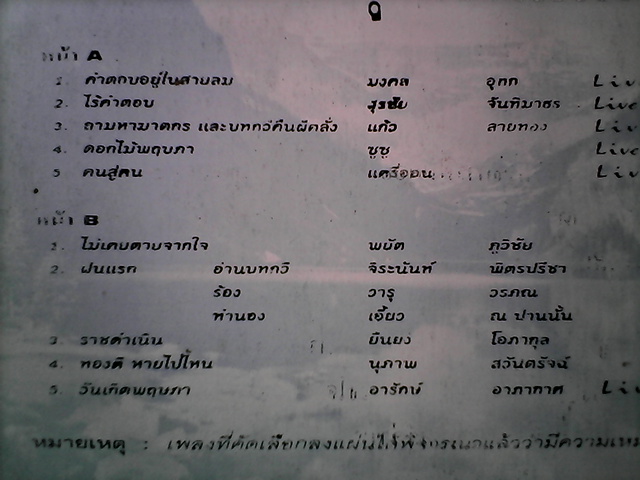 ๑
หน้า A
1. คำตอบอยู่ในสายลม มงคล อุทก Live
2. ไร้คำตอบ สุรชัย จันทิมาธร Live
3. ถามหามาตกร และบทกวีคืนผีคลั่ง แก้ว ลายทอง Live
4. ดอกไม้พฤษภา ซูซู Live
5 คนสู่คน แฮรี่ออน Live
หน้า B
1. ไม่เคยตายจากใจ พยัต ภูวิชัย
2. ฝนแรก อ่านบทกวี จิระนันท์ พิตรปรีชา
ร้อง วารุ วรภณ
ทำนอง เอี้ยว ณ ปานนั้น
3 ราชดำเนิน ยืนยง โอภากุล
4. ทองดี หายไปไหน นุภาพ สวันตรัจน์
5. วันเกิดพฤษภา อารักษ์ อาภากาศ Li
หมายเหตุ : เพลงที่คัดเลือกลงแผ่นได้พิจารณาแล้วว่ามีความ